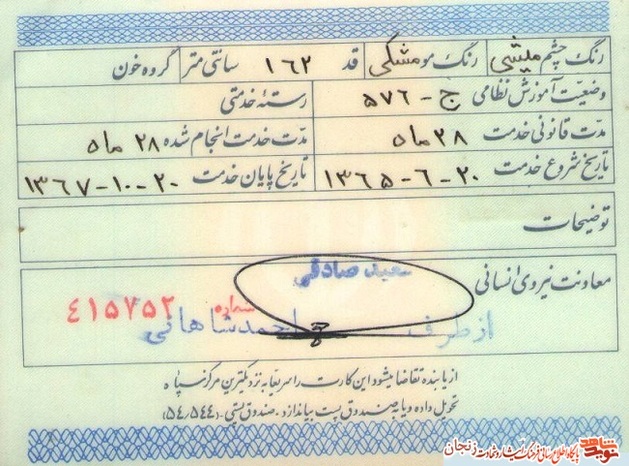 رنگ چشم میشی رنگ مو مشکی قد ۱۶۲ سانتی متر گروه خون
وضعیت آموزش نظامی ج - ۵۷۶ رستهٔ خدمتی
مدت قانونی خدمت ۲۸ ماه مدت خدمت انجام شده ۲۸ ماه
تاریخ شروع خدمت ۲۰-۶-۱۳۶۵ تاریخ پایان خدمت ۲۰-۱۰-۱۳۶۷
توضیحات
معاونت نیروی انسانی
سعید صادقی
شماره ۴۱۵۷۵۲
از طرف احمد شاهانی
از یابنده تقاضا میشود این کارت را سریعا به نزدیکترین مرکز سپاه
تحویل داده و یا به صندوق پست بیاندازد. صندوق پستی: (۵۴/۵۴۴)
نوید شاهد
پایگاه اطلاع رسانی فرهنگ ایثار و شهادت زنجان